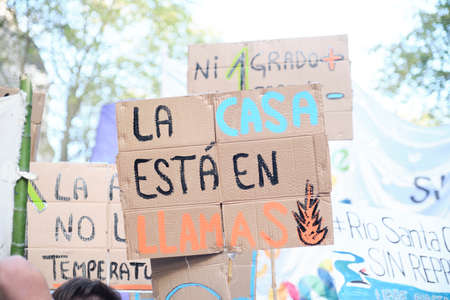 NI 1 GRADO +
LA CASA
ESTÁ EN
LLAMAS
LA
NO
TEMPERATU
+ Río Santa C
SIN REPR